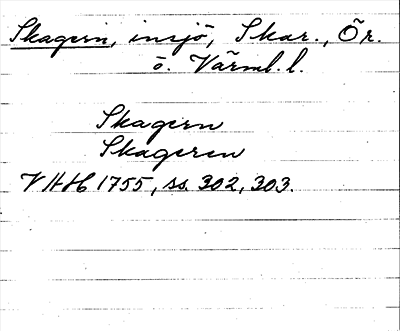 Skagern, insjö, Skar., Ör.
ö. Värml. l.
Skagern
Skageren
VHH 1755, ss. 302, 303.